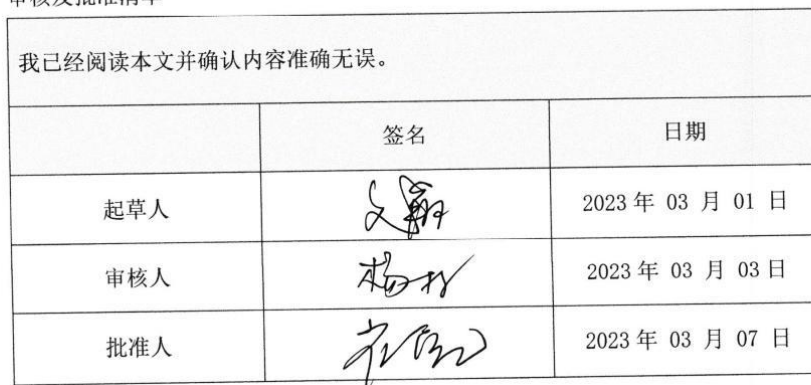 审核及批准清单
我已经阅读本文并确认内容准确无误。
签名 日期
起草人 2023 年 03 月 01 日
审核人 杨 2023 年 03 月 03 日
批准人 2023 年 03 月 07 日